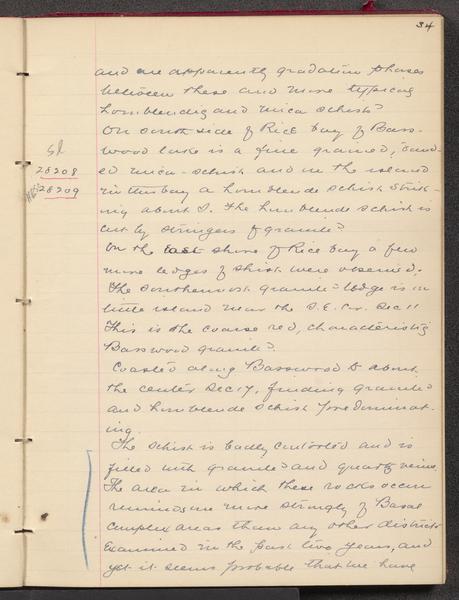 34
and are apparently gradation phases
between these and more typical
hornblendic and mica schists.
On south side of Rice bay of Bass-
wood lake is a fine grained, band-
ed mica-schist and on the island
in the bay a hornblende schist strik-
ing about S. The hornblende schist is
cut by stringers of granite.
sl
28208
28209
On the east shore of Rice bay a few
more ledges of schist were observed.
The southernmost granite ledge is on
little island near the S.E. Cor. Sec 11
This is the coarse red, characteristic
Basswood granite.
Coasted along Basswood to about
the center Sec 17, finding granite
and hornblende schist predominat-
ing.
The schist is badly contorted and is
filled with granite and quartz veins.
The area in which these rocks occur
reminds me more strongly of Basal
Complex areas than any other districts
examined in the past two years, and
yet it seems probable that we have